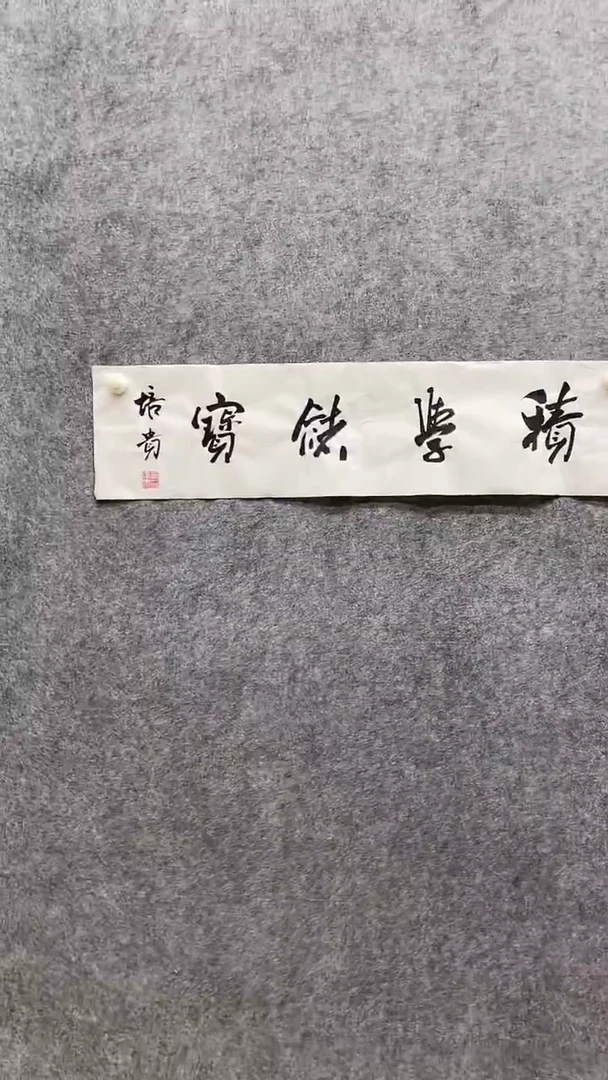 積學儲寶
培貴